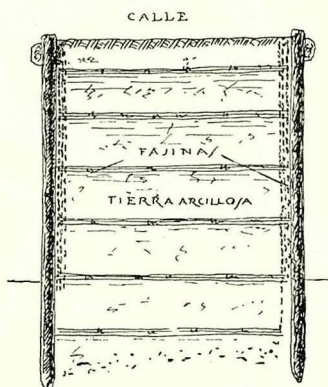 CALLE
FAJINAS
TIERRA ARCILLOSA